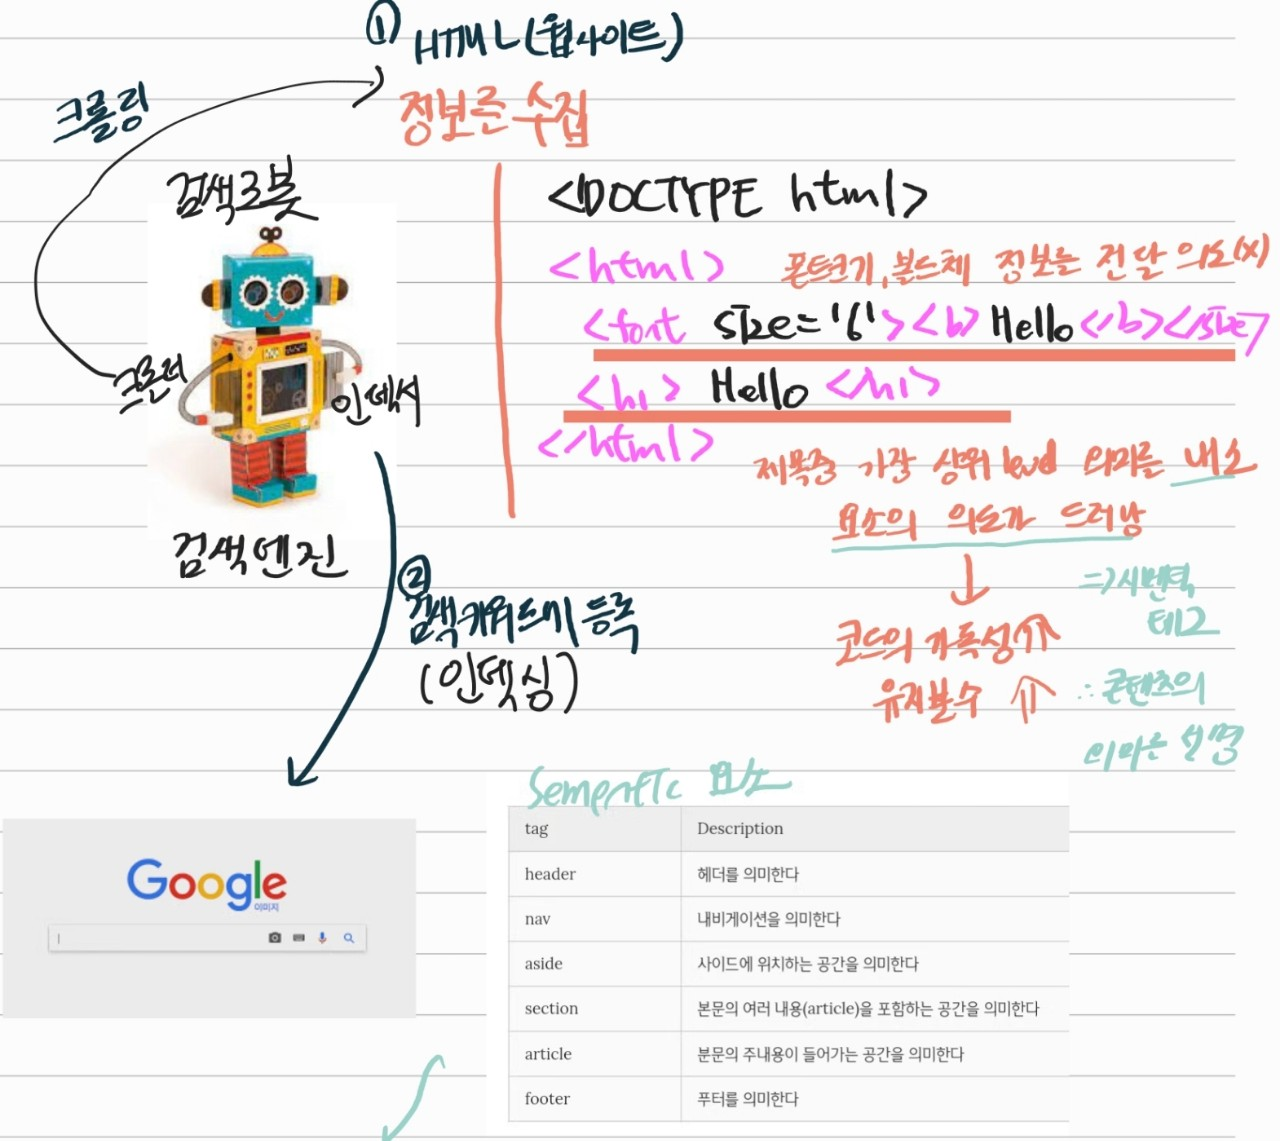 ① HTML(웹사이트)
크롤링
정보를 수집
검색로봇
<!DOCTYPE html>
<html> 폰트크기, 볼드체 정보를 전달 의도(x)
<font size='6'><b> Hello </b></size>
크롤러
인덱서
<h1> Hello <h1>
</html>
제목중 가장 상위 level 의미를 내소
요소의 의도가 드러남
검색엔진
②
검색키워드에 등록
(인덱싱)
=> 시멘틱
테그
코드의 가독성⇑
유지봉수 ⇑
∴ 콘텐츠의
의미를 설명
요소
tag Description
header 헤더를 의미한다
nav 내비게이션을 의미한다
aside 사이드에 위치하는 공간을 의미한다
section 본문의 여러 내용(article)을 포함하는 공간을 의미한다
article 분문의 주내용이 들어가는 공간을 의미한다
footer 푸터를 의미한다
Google
이미지